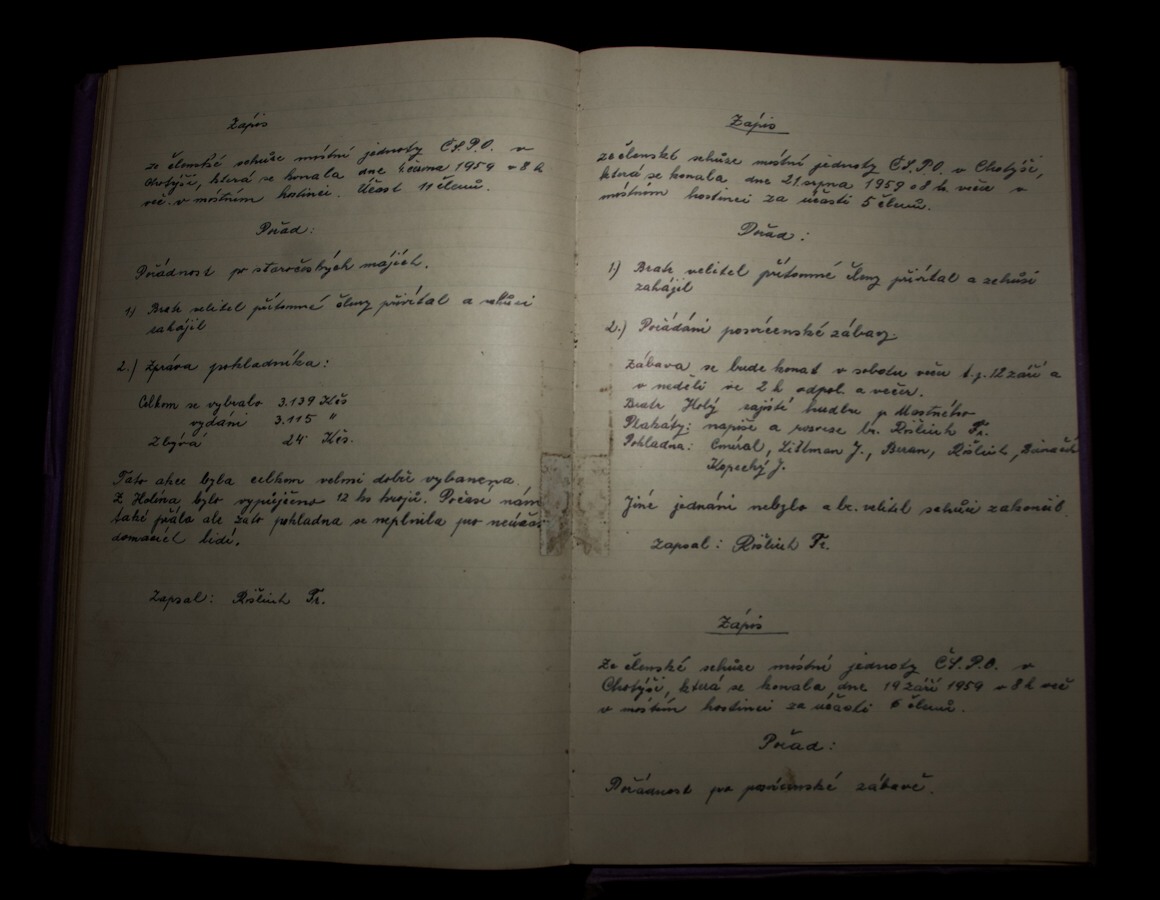 Zápis
ze členské schůze místní jednoty ČS.P.O. v
Chotýši, která se konala dne 4. června 1959 v 8 h
več. v místním hostinci. Účast 11 členů.
Pořad:
Pořádnost po staročeských májích.
1) Bratr velitel přítomné členy přivítal a schůzi
zahájil
2.) Zpráva pokladníka:
Celkem se vybralo 3.139 Kčs
vydání 3.115 "
Zbývá 24 Kčs.
Tato akce byla celkem velmi dobře
Z Holína bylo vypůjčeno 12 ks krojů. Počasí nám
také přálo ale zato pokladna se neplnila pro neúčast
domácích lidí.
Zapsal: Fr.
Zápis
ze členské schůze místní jednoty ČS.P.O. v Chotýši,
která se konala dne 21. srpna 1959 v 8 h. večer v
místním hostinci za účasti 5 členů.
Pořad:
1.) Bratr velitel přítomné členy přivítal a schůzi
zahájil
2.) Pořádání posvícenské zábavy.
Zábava se bude konat v sobotu večer t.j. 12 září a
v neděli ve 2 h odpol. a večer.
Bratr Holý zajistí hudbu p Mastného
Plakáty: napíše a rozveze br. Fr.
Pokladna: Cmíral, Littman J., Beran,
Kopecký J.
Jiné jednání nebylo a br. velitel schůzi zakončil.
Zapsal: Fr.
Zápis
Ze členské schůze místní jednoty ČS.P.O. v
Chotýši, která se konala dne 19 září 1959 v 8 h več
v místním hostinci za účasti 6 členů.
Pořad:
Pořádnost po posvícenské zábavě.